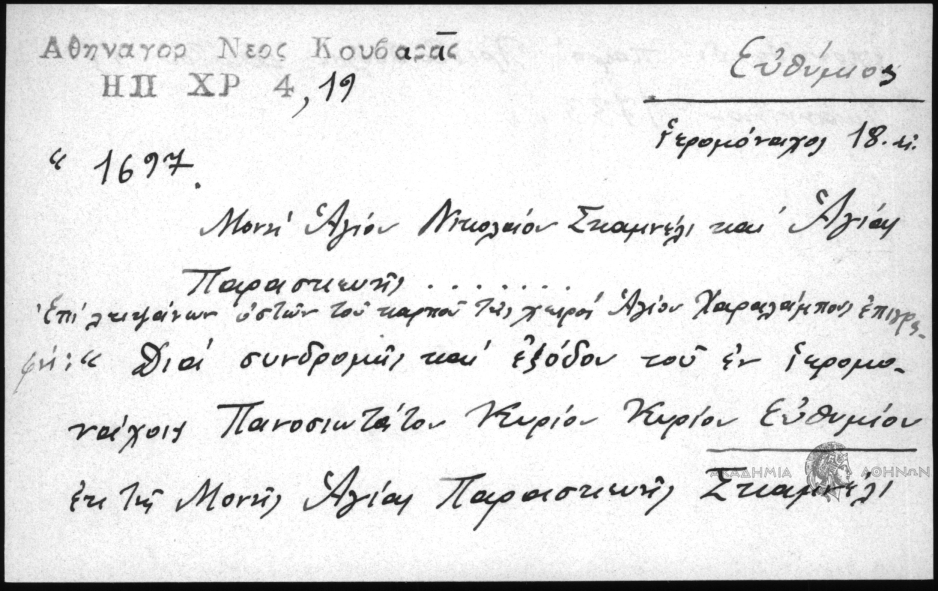 Αθηναγορ Νεος Κουβαρᾶς
ΗΠ ΧΡ 4, 19
Εὐθύμιος
ἱερομόναχος 18. αἰ.
“ 1697.
Μονή Ἁγίου Νικολάου Σκαμνέλι καί Ἁγίας
Παρασκευῆς . . . . . . .
Ἐπί λειψάνων ὀστῶν τοῦ καρποῦ τῆς χειρός Ἁγίου Χαραλάμπους ἐπιγρα-
φή: “ Διά συνδρομῆς καί ἐξόδου τοῦ ἐν ἱερομο-
νάχοις Πανοσιωτάτου Κυρίου Κυρίου Εὐθυμίου
ἐκ τῆς Μονῆς Ἁγίας Παρασκευῆς Σκαμνέλι
ΑΚΑΔΗΜΙΑ ΑΘΗΝΩΝ